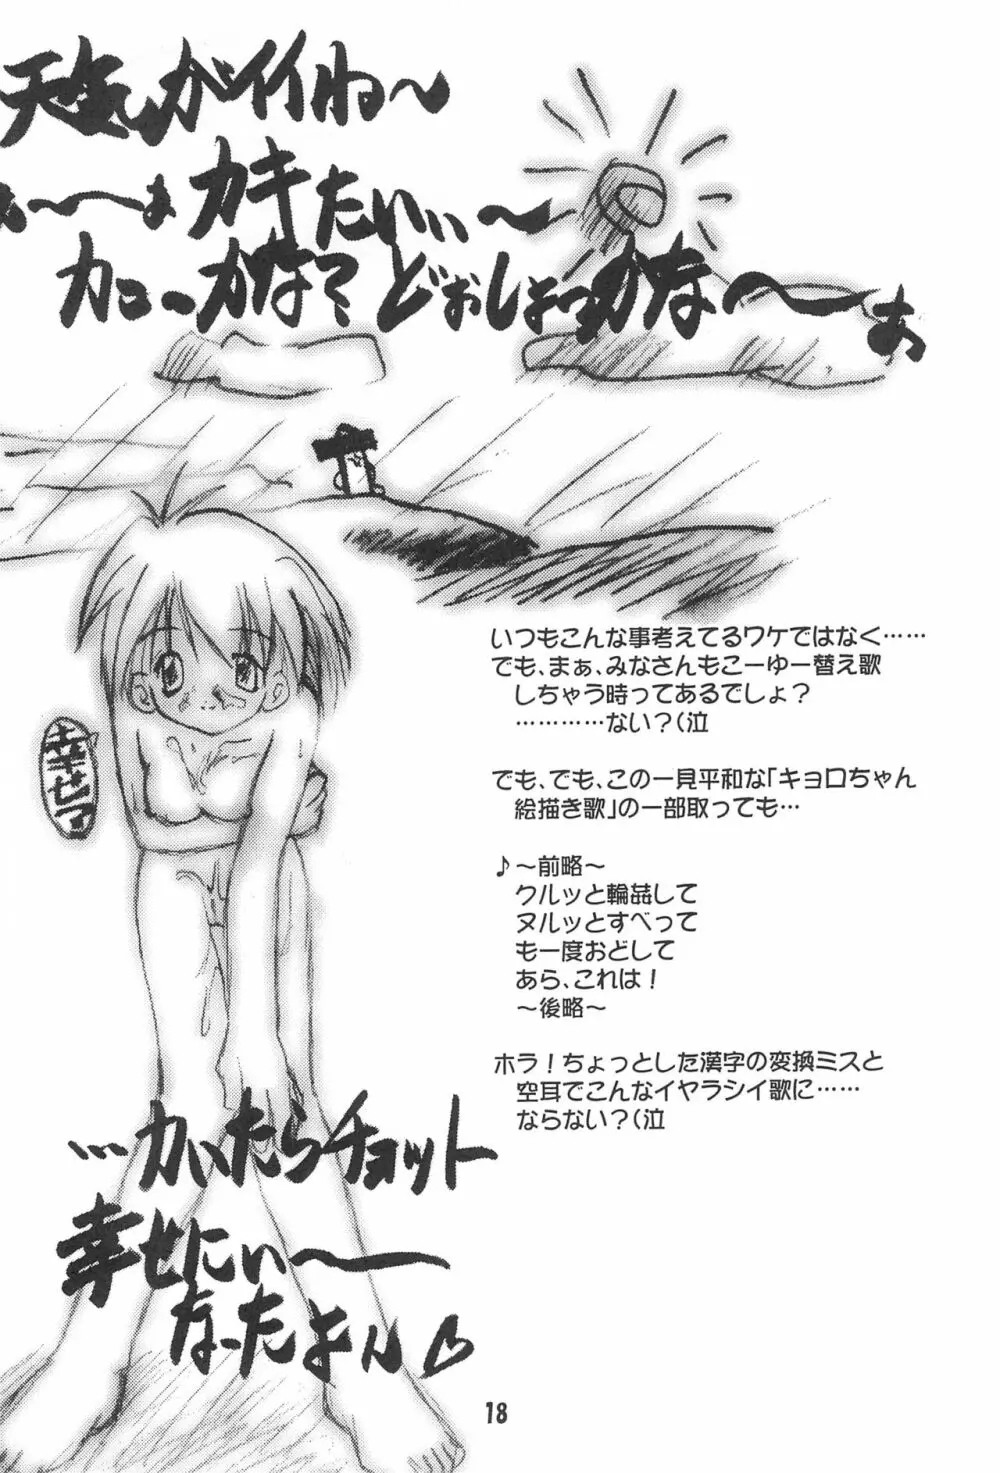 天気がイイね～
カキたいぃぃ～
カユーカなって どぉしょっかな～ぁ
幸せア
いつもこんな事考えてるワケではなく……
でも、まぁ、みなさんもこーゆー替え歌
しちゃう時ってあるでしょ？
…………ない？(泣
でも、でも、この一見平和な「キョロちゃん
絵描き歌」の一部取っても…
♪～前略～
クルッと輪姦して
ヌルッとすべって
も一度おどして
あら、これは！
～後略～
ホラ！ちょっとした漢字の変換ミスと
空耳でこんなイヤラシイ歌に……
ならない？(泣
…かいたらチョット
幸せにぃ～
なったよん♡
18